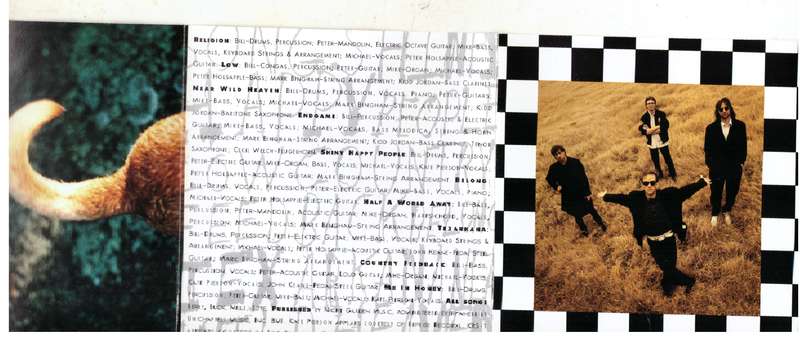 Religion: Bill-Drums, Percussion; Peter-Mandolin, Electric Octave Guitar; Mike-Bass,
Vocals, Keyboard Strings & Arrangement; Michael-Vocals; Peter Holsapple-Acoustic
Guitar. Low: Bill-Congas, Percussion; Peter-Guitar; Mike-Organ; Michael-Vocals;
Peter Holsapple-Bass; Mark Bingham-String Arrangement; Kidd Jordan-Bass Clarinet
Near Wild Heaven: Bill-Drums, Percussion, Vocals, Piano; Peter-Guitars;
Mike-Bass, Vocals; Michael-Vocals; Mark Bingham-String Arrangement; Kidd
Jordan-Baritone Saxophone. Endgame: Bill-Percussion; Peter-Acoustic & Electric
Guitars; Mike-Bass, Vocals; Michael-Vocals, Bass Melodica; String & Horn
Arrangement, Mark Bingham-String Arrangement; Kidd Jordan-Bass Clarinet, Tenor
Saxophone; Cecil Welch-Flugelhorn. Shiny Happy People: Bill-Drums, Percussion;
Peter-Electric Guitar; Mike-Organ, Bass, Vocals; Michael-Vocals; Kate Pierson-Vocals;
Peter Holsapple-Acoustic Guitar; Mark Bingham-String Arrangement. Belong:
Bill-Drums, Vocals, Percussion; Peter-Electric Guitar; Mike-Bass, Vocals, Piano;
Michael-Vocals; Peter Holsapple-Electric Guitar. Half A World Away:
Percussion; Peter-Mandolin, Acoustic Guitar; Mike-Organ, Harpsichord, Vocals,
Percussion; Michael-Vocals; Mark Bingham-String Arrangement. Texarkana:
Bill-Drums, Percussion; Peter-Electric Guitar; Bass, Vocals, Keyboard Strings &
Arrangement; Michael-Vocals; Peter Holsapple-Acoustic Guitar; John Keane-Pedal Steel
Guitar; Mark Bingham-String Arrangement. Country Feedback: Bill-Bass,
Percussion, Vocals; Peter-Acoustic Guitar, Loud Guitar; Mike-Organ; Michael-Vocals;
Kate Pierson-Vocals; John Keane-Pedal Steel Guitar. Me In Honey: Bill-Drums,
Percussion; Peter-Guitar; Mike-Bass; Michael-Vocals; Kate Pierson-Vocals. All songs
Berry, Buck, Mills, Stipe. Published by Night Garden Music, Administered
Unichappell Music, Kate Pierson appears courtesy of Reprise Records.